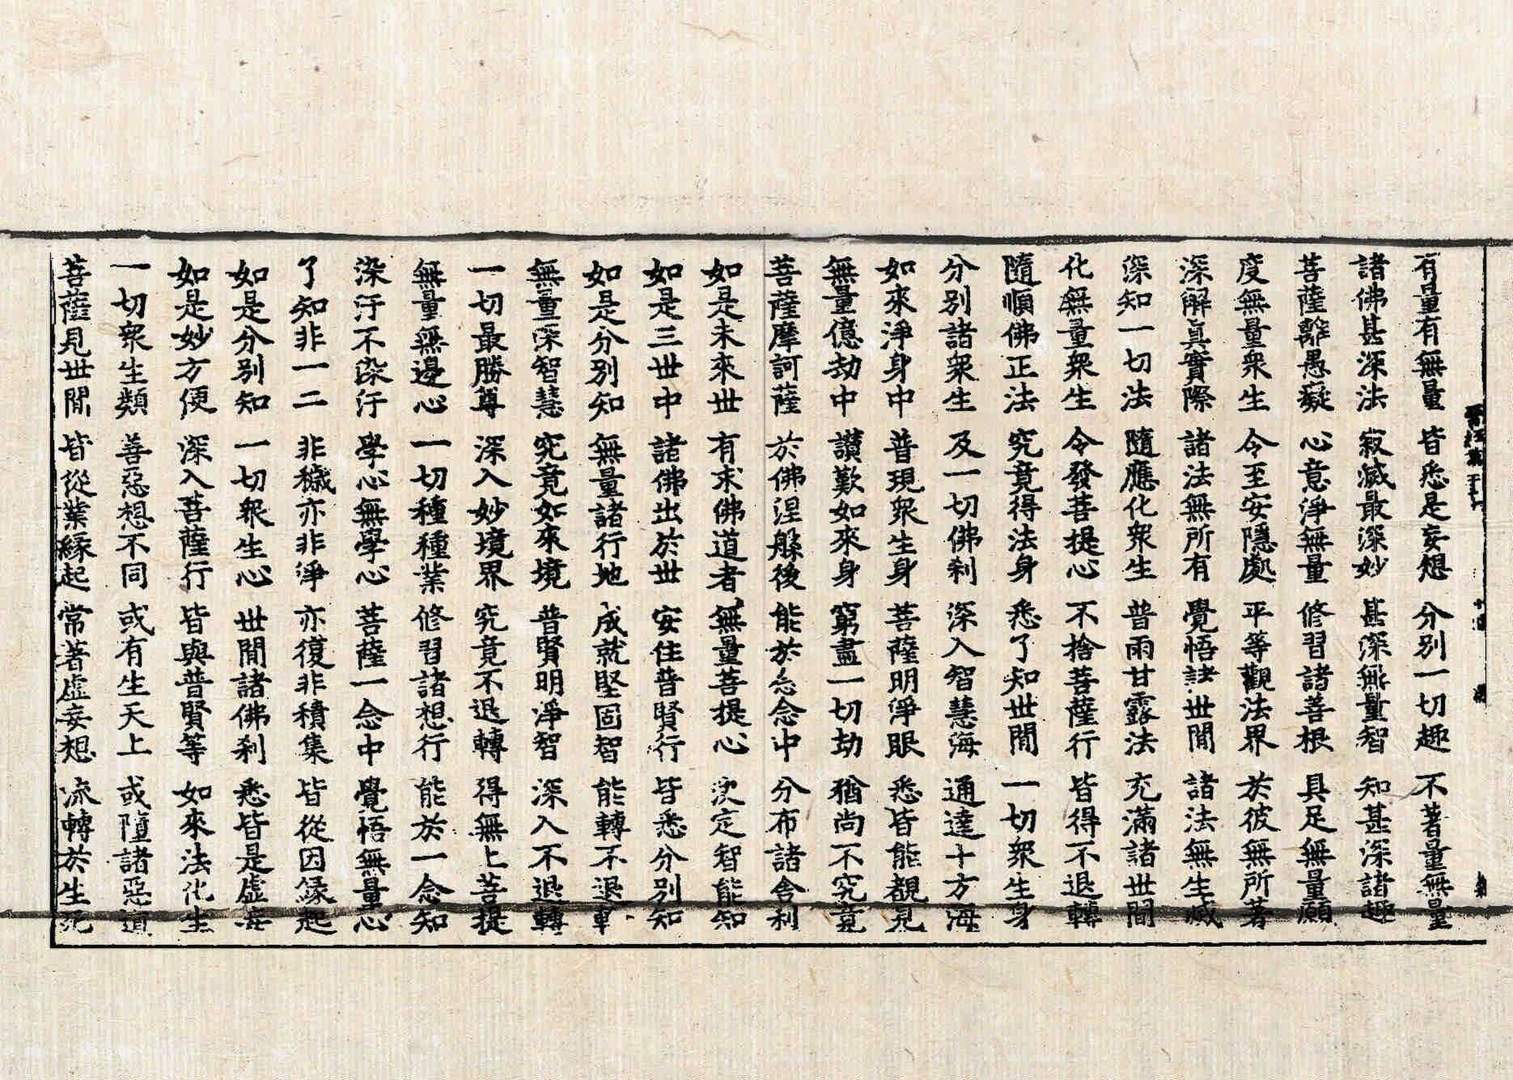 有量有無量 皆悉是妄想 分別一切趣 不著量無量
諸佛甚深法 寂滅最深妙 甚深無量智 知甚深諸趣
菩薩離愚癡 心意淨無量 修習諸善根 具足無量願
度無量衆生 令至安隱處 平等觀法界 於彼無所著
深解眞實際 諸法無所有 覺悟諸世間 諸法無生滅
深知一切法 隨應化衆生 普雨甘露法 充滿諸世間
化無量衆生 令發菩提心 不捨菩薩行 皆得不退轉
隨順佛正法 究竟得法身 悉了知世間 一切衆生身
分別諸衆生 及一切佛刹 深入智慧海 通達十方海
如來淨身中 普現衆生身 菩薩明淨眼 悉皆能覩見
無量億劫中 讃歎如來身 窮盡一切劫 猶尚不究竟
菩薩摩訶薩 於佛涅槃後 能於念念中 分布諸舎利
如是未來世 有求佛道者 無量菩提心 決定智能知
如是三世中 諸佛出於世 安住普賢行 皆悉分別知
如是分別知 無量諸行地 成就堅固智 能轉不退
無量深智慧 究竟如來境 普賢明淨智 深入不退轉
一切最勝尊 深入妙境界 究竟不退轉 得無上菩提
無量無邊心 一切種種業 修習諸想行 能於一念知
染汙不染汙 學心無學心 菩薩一念中 覺悟無量心
了知非一二 非穢亦非淨 亦復非積集 皆從因緣起
如是分別知 一切衆生心 世間諸佛刹 悉皆是虛妄
如是妙方便 深入菩薩行 皆與普賢等 如來法化生
一切衆生類 善惡想不同 或有生天上 或墮諸惡道
菩薩見世間 皆從業緣起 常著虛妄想 流轉於生死